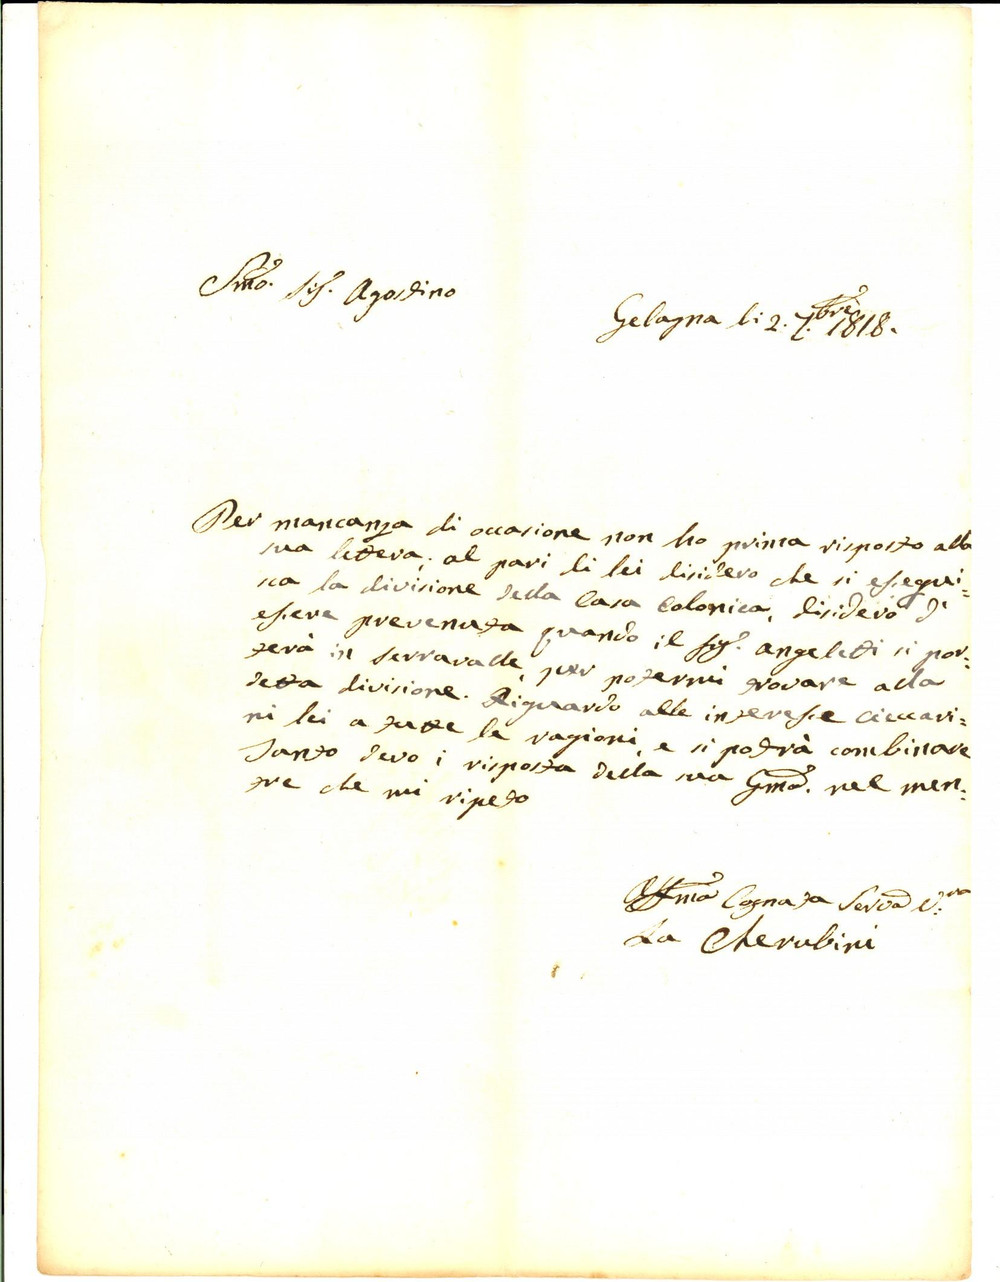 Smo. Sig. Agostino
Gelagna li 2. 7.bre 1818.
Per mancanza di occasione non ho prima risposto alla
sua lettera, al pari di lei disidero che si esegui=
sca la divisione della Casa Colonica, disidero d'
essere prevenuta quando il Sig. Angeletti si por=
terà in Serravalle, per potermi trovare alla
detta divisione. Riguardo alle interesse Ciccari=
ni lei a tutte le ragioni, e si potrà combinare
Tanto devo i risposta della sua Gma. nel men=
tre che mi ripeto
Affma Cognata Serva V.ra
La Cherubini